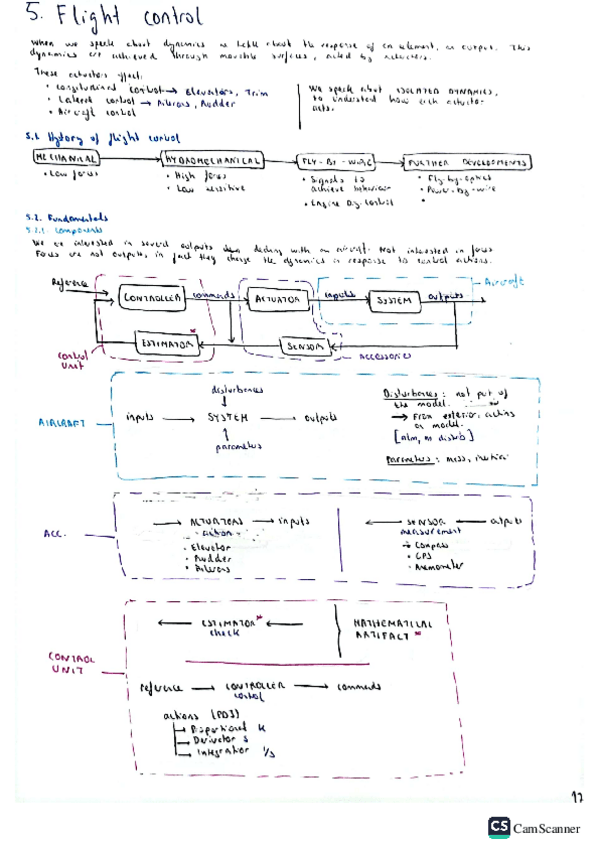 5. Flight control
When we speak about dynamics we talk about the response of an element, an output. This
dynamics are achieved through movable surfaces, acted by actuators.
These actuators affect:
• Longitudinal control → Elevators, Trim
• Lateral control → Ailerons, Rudder
• Aircraft control
We speak about ISOLATED DYNAMICS,
to understand how each actuator
acts.
5.1. History of flight control
MECHANICAL
HYDROMECHANICAL
FLY-BY-WIRE
FURTHER DEVELOPMENTS
• Low forces
• High forces
• Low sensitive
• Signals to
achieve behaviour
• Engine Dig. control
• Fly-by-optics
• Power-by-wire
•
5.2. Fundamentals
5.2.1. Components
We are interested in several outputs when dealing with an aircraft. Not interested in forces
Forces are not outputs, in fact they change the dynamics in response to control actions.
Reference
CONTROLLER
commands
ACTUATOR
inputs
SYSTEM
outputs
Aircraft
ESTIMATOR *
SENSOR
control
UNIT
ACCESSORIES
AIRCRAFT
disturbances
inputs → SYSTEM → outputs
parameters
Disturbances: not part of
the model.
→ From exterior, actions
on model.
[atm, no distrib]
Parameters: mass, inertias
ACC.
→ ACTUATORS → inputs
action
• Elevator
• Rudder
• Ailerons
← SENSOR ← outputs
measurement
→ Compass
• GPS
• Anemometer
CONTROL
UNIT
← ESTIMATOR* ←
check
MATHEMATICAL
ARTIFACT *
reference → CONTROLLER → commands
control
actions (PDI)
→ Proportional K
→ Derivator s
→ Integrator 1/s
17
CS CamScanner